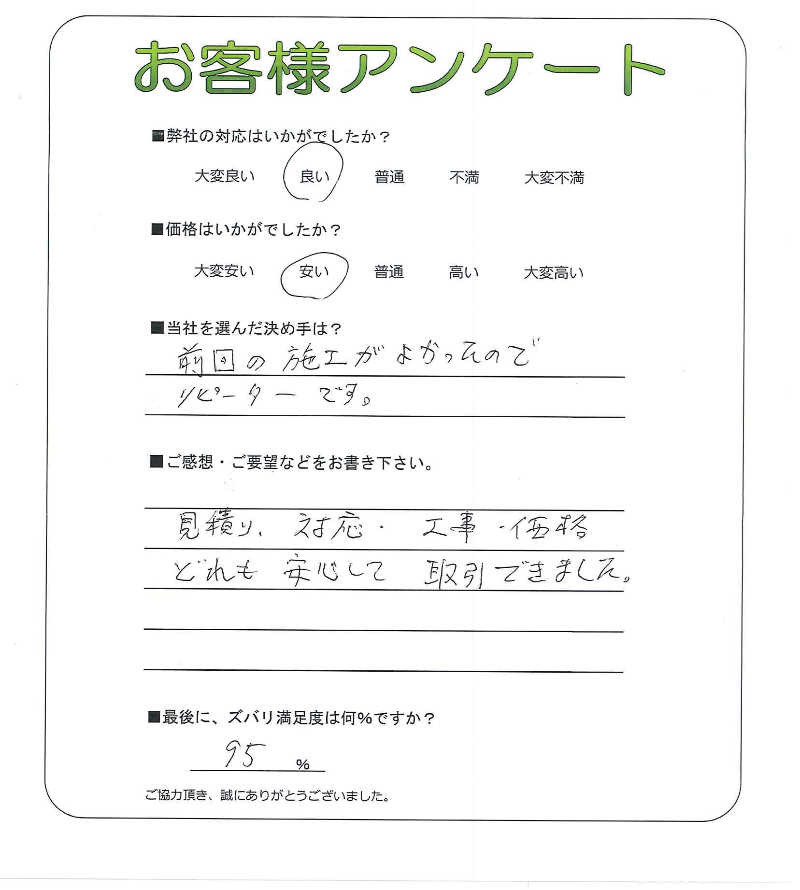 お客様アンケート
■弊社の対応はいかがでしたか？
大変良い 良い 普通 不満 大変不満
■価格はいかがでしたか？
大変安い 安い 普通 高い 大変高い
■当社を選んだ決め手は？
前回の施工がよかったので
リピーターです。
■ご感想・ご要望などをお書き下さい。
見積り、対応・工事・価格
どれも安心して取引できました。
■最後に、ズバリ満足度は何%ですか？
95 %
ご協力頂き、誠にありがとうございました。